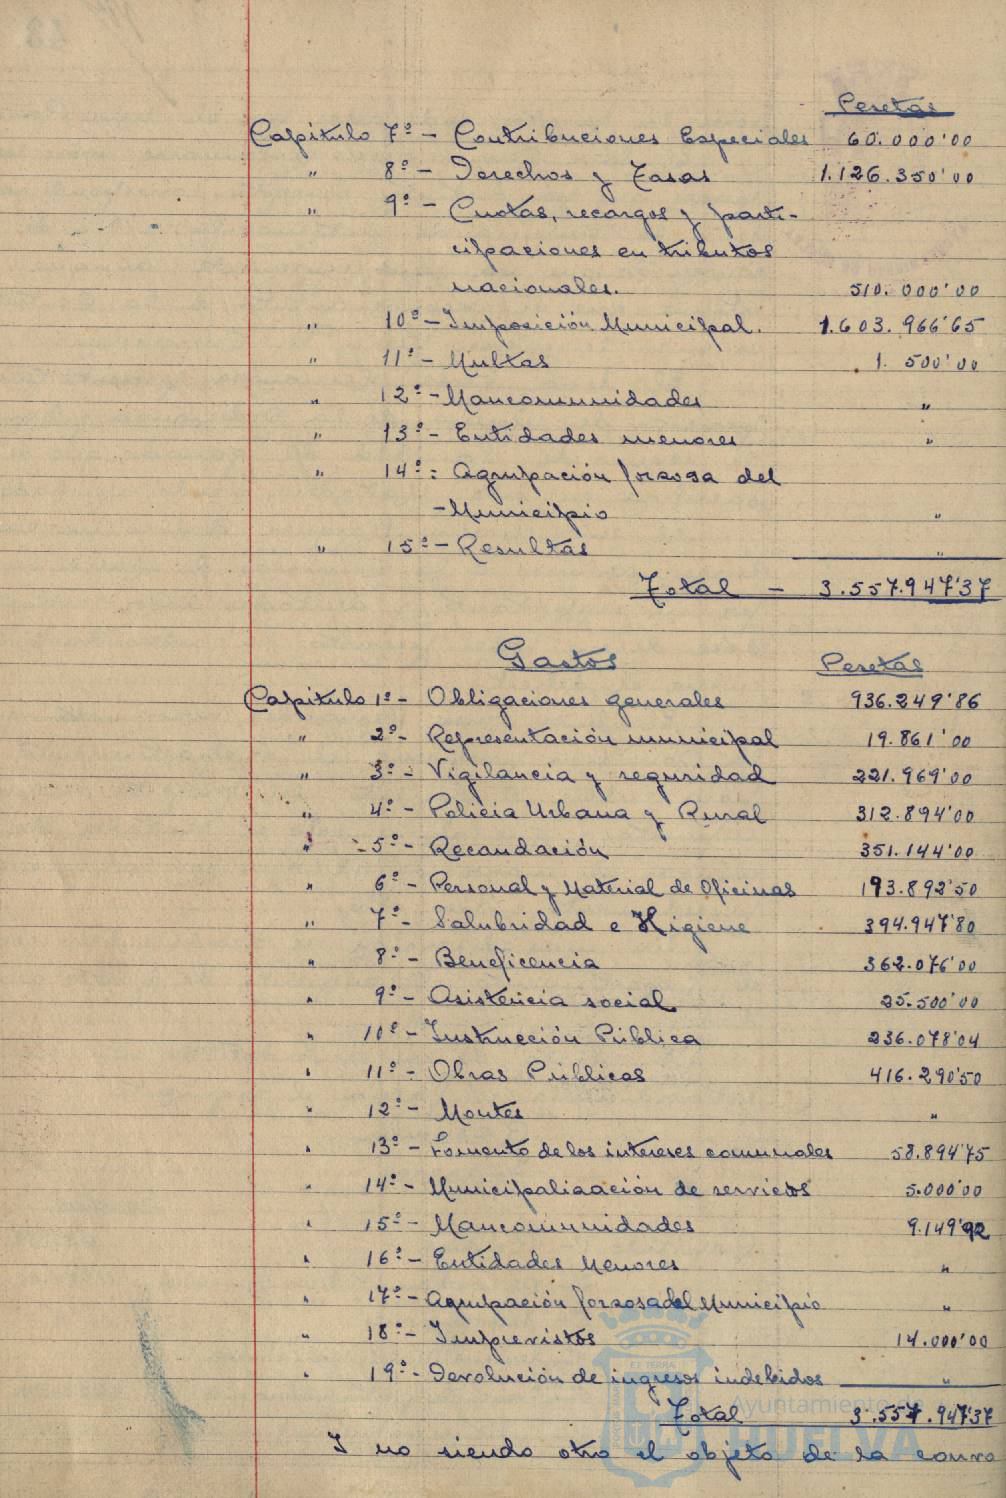 Pesetas
Capitulo 7º - Contribuciones Especiales 60.000'00
" 8º - Derechos y Tasas 1.126.350'00
" 9º - Cuotas, recargos y parti-
cipaciones en tributos
nacionales. 510.000'00
" 10º - Imposición Municipal. 1.603.966'65
" 11º - Multas 1.500'00
" 12º - Mancomunidades "
" 13º - Entidades menores "
" 14º - Agrupación forzosa del
- Municipio "
" 15º - Resultas "
Total - 3.557.947'37
Gastos Pesetas
Capitulo 1º - Obligaciones generales 936.249'86
" 2º - Representación municipal 19.861'00
" 3º - Vigilancia y seguridad 221.969'00
" 4º - Policia Urbana y Rural 312.894'00
" 5º - Recaudación 351.144'00
" 6º - Personal y Material de Oficinas 193.892'50
" 7º - Salubridad e Higiene 394.947'80
" 8º - Beneficencia 362.076'00
" 9º - Asistencia social 25.500'00
" 10º - Instrucción Pública 236.078'04
" 11º - Obras Públicas 416.290'50
" 12º - Montes "
" 13º - Fomento de los intereses comunales 58.894'75
" 14º - Municipalización de servicios 5.000'00
" 15º - Mancomunidades 9.149'92
" 16º - Entidades Menores "
" 17º - Agrupación forzosa del Municipio "
" 18º - Imprevistos 14.000'00
" 19º - Devolución de ingresos indebidos "
Total 3.557.947'37
Y no siendo otro el objeto de la convo
Ayuntamiento
HUELVA